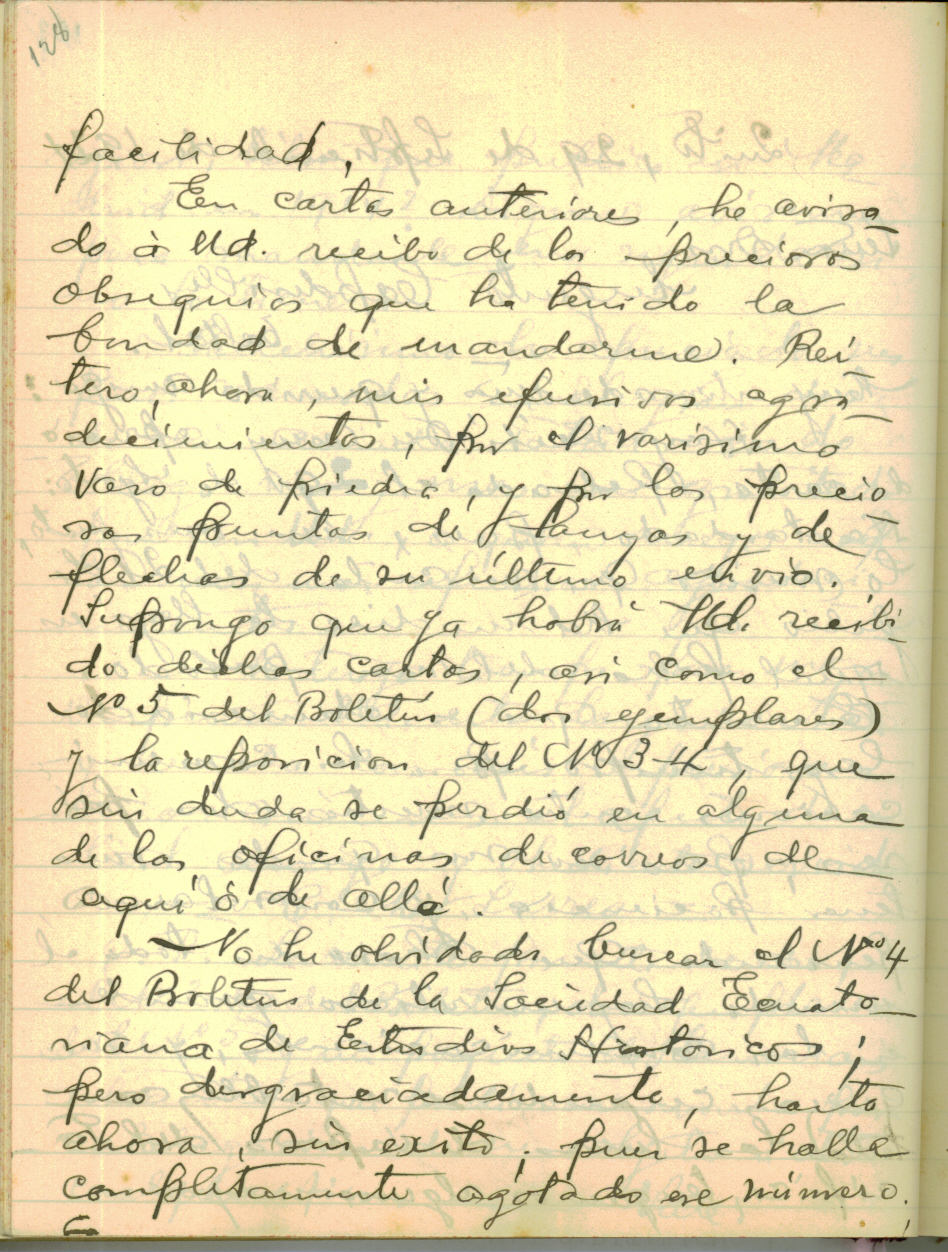 128
facilidad,
Een cartas anteriores, he avisa-
do à Ud. recibo de los preciosos
obsequios que ha tenido la
bondad de mandarme. Rei-
tero, ahora, mis efusivos agra-
decimientos, por el rarisimo
vaso de piedra, y por las precio-
sas puntas de lanzas y de
flechas de su último envio.
Supongo que ya habrá Ud. recibi-
do dichas cartas, asi como el
Nº 5 del Boletín (dos ejemplares)
y la reposicion del Nº 3-4, que
sin duda se perdió en alguna
de las oficinas de correos de
aquí ó de allá.
No he olvidado buscar el Nº 4
del Boletin de la Sociedad Ecuato-
riana de Estudios Historicos;
pero desgraciadamente, hasta
ahora, sin exito; pues se halla
completamente agotado ese número.